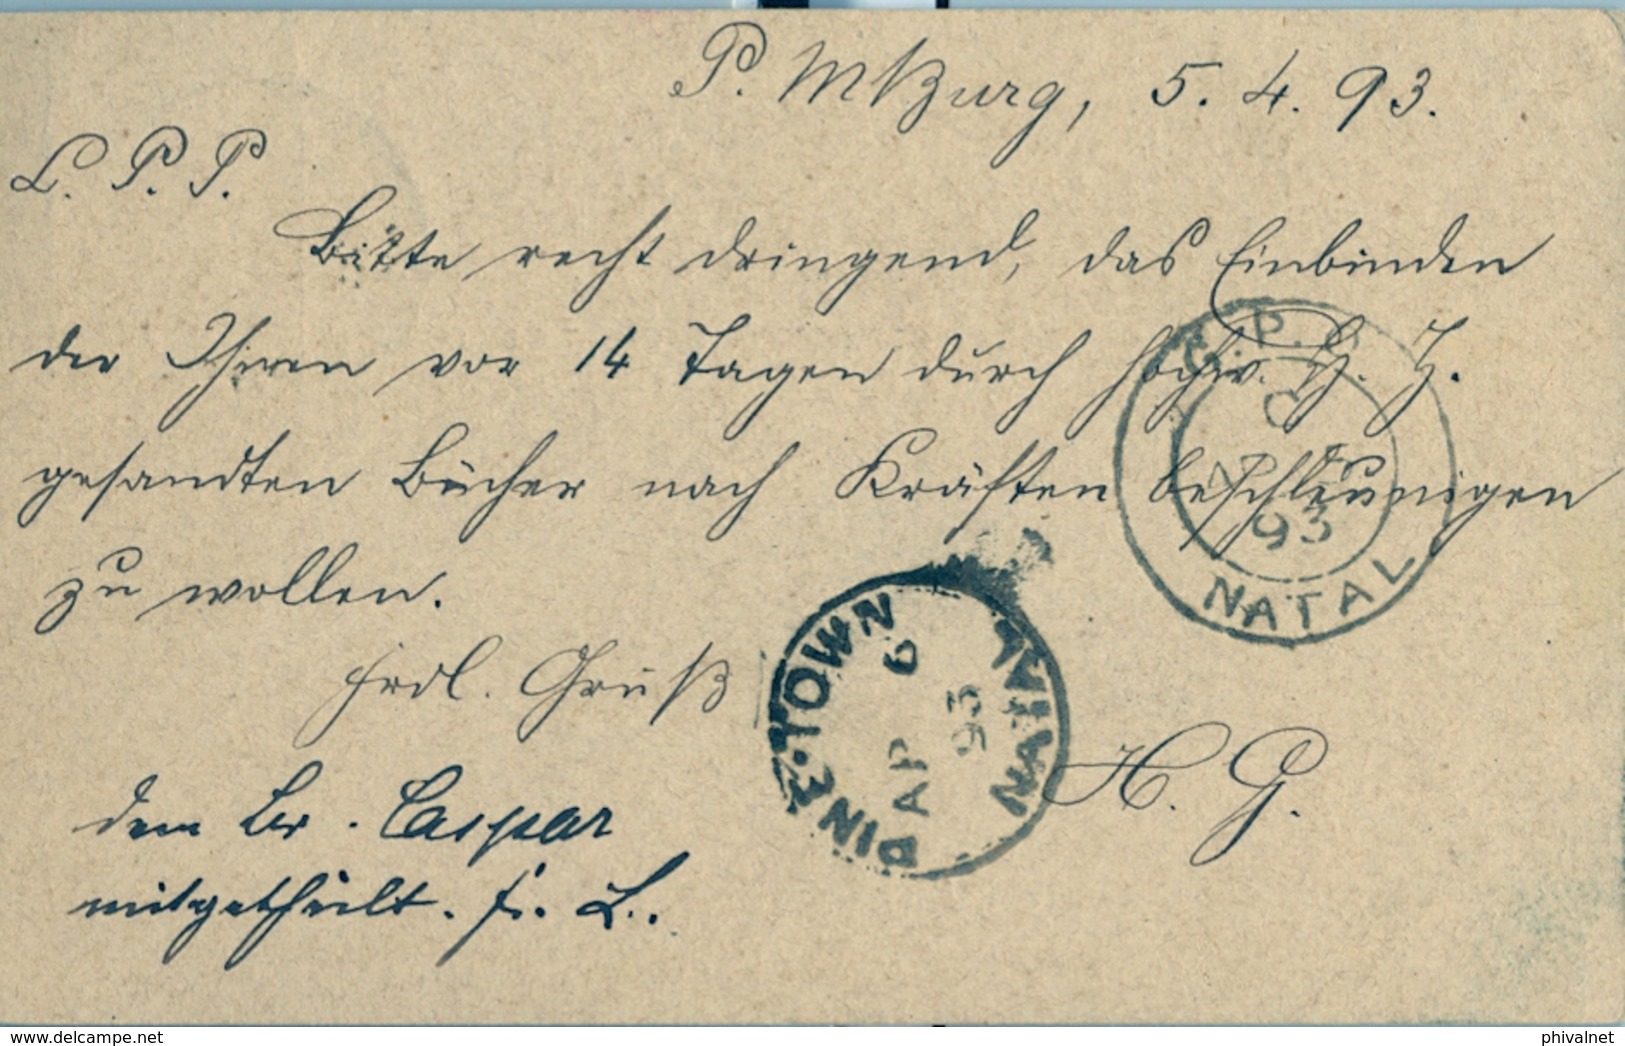 P. MBurg, 5. 4. 93.
L. P. P.
Bitte recht dringend, das Einbinden
der Ihnen vor 14 Tagen durch hochw. P. J.
gesandten Bücher nach Kräften beschleunigen
zu wollen.
frdl. Gruß
H. G.
dem Br. Caspar
mitgetheilt. f. L.
G.P.O.
C
93
NATAL
PINE·TOWN
AP 6
93
NATAL
delcampe.net
phivalnet